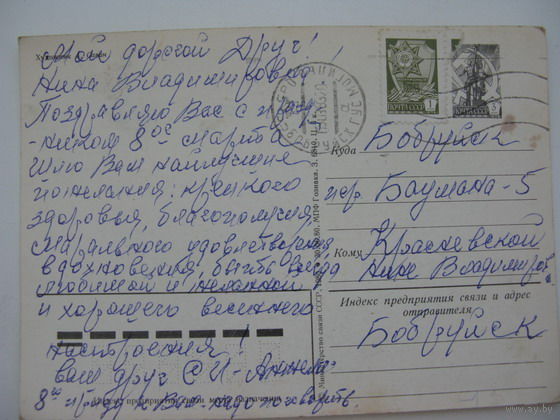 Мой дорогой Друг!
Нина Владимировна
Поздравляю Вас с празд-
ником 8ое марта
Шлю Вам наилучшие
пожелания: крепкого
здоровья, благополучия,
морального удовлетворения,
вдохновения, быть всегда
любимой и желанной
и хорошего весеннего
настроения!
Ваш друг
8го приду к Вам надо поговорить
ПОЧТА СССР 1
ПОЧТА СССР
Куда Бобруйск
пер. Баумана-5
Кому Красневской
Нине Владимиров.
Индекс предприятия связи и адрес
отправителя
Бобруйск
Министерство связи СССР